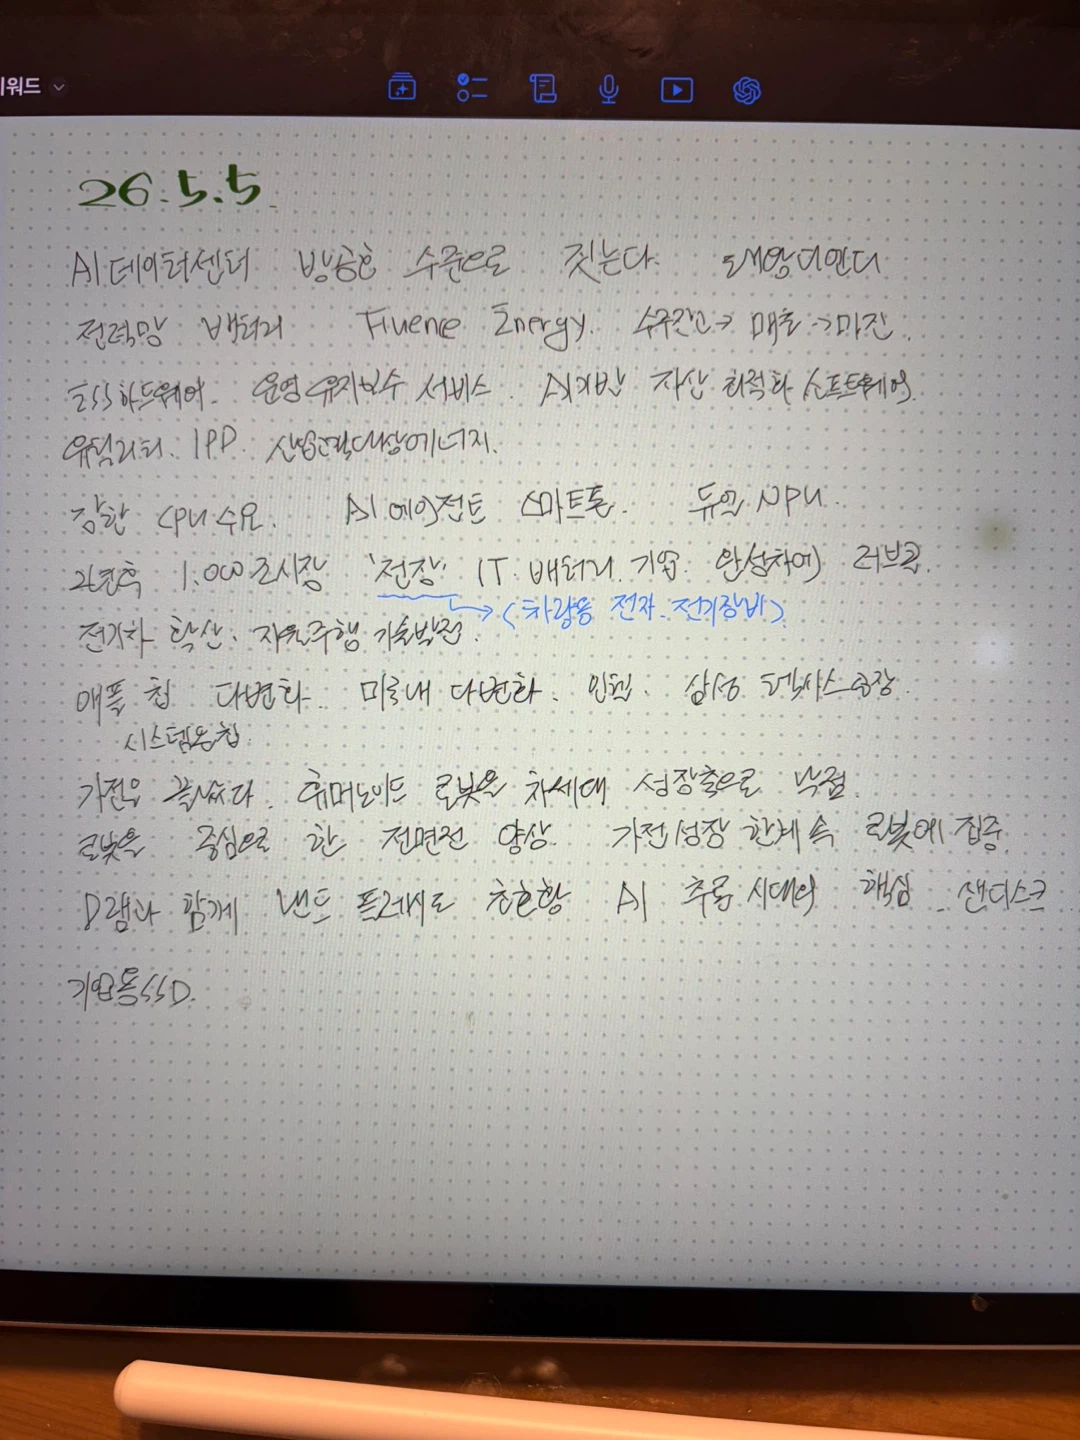 키워드
26.5.5.
AI 데이터센터 방공호 수준으로 짓는다. 태양디앤디
전력망 배터리 Fluence Energy. 수주잔고→ 매출→마진.
ESS하드웨어. 운영유지보수 서비스. AI기반 자산 최적화 소프트웨어.
유틸리티. IPP. 산업 대상에너지.
강한 CPU 수요. AI 에이전트 스마트폰. 듀얼 NPU.
2년후 1,000조시장 '전장' IT. 배터리 기업. 완성차에 러브콜.
→(차량용 전자. 전기장비)
전기차 확산. 자율주행 기술발전.
애플 칩 다변화. 미국내 다변화. 인텔. 삼성 텍사스공장.
시스템온칩.
가전은 끝났다. 휴머노이드 로봇을 차세대 성장축으로 낙점.
로봇을 중심으로 한 전면전 양상. 가전성장 한계 속 로봇에 집중.
D램과 함께 낸드 플래시도 초호황 AI 추론시대의 핵심 샌디스크
기업용SSD.